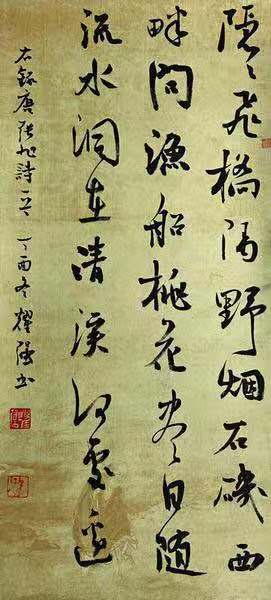 隱〻飛橋隔野烟石磯西
畔問漁船桃花尽日随
流水洞在清溪何處邊
右錄唐張旭詩一首 丁酉冬耀強书